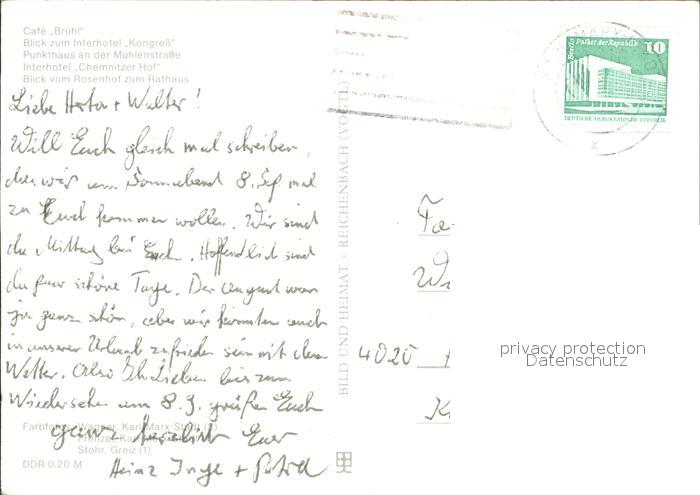 Café „Brühl"
Blick zum Interhotel „Kongreß"
Punkthaus an der Mühlenstraße
Interhotel „Chemnitzer Hof"
Blick vom Rosenhof zum Rathaus
Liebe Herta + Walter!
Will Euch gleich mal schreiben,
das wir am Sonnabend 8. Sep mal
zu Euch kommen wollen. Wir sind
da Mittag bei Euch. Hoffendlich sind
da paar schöne Tage. Der August war
ja ganz schön, aber wir konnten auch
in unserer Urlaub zufrieden sein mit dem
Wetter. Also Ihr Lieben bis zum
Wiedersehen am 8.9. grüßen Euch
ganz herzlich Eure
Heinz Inge + Petra
Farbfotos: Wagner, Karl-Marx-Stadt
Stöhr, Greiz (1)
DDR 0,20 M
BILD UND HEIMAT · REICHENBACH (VOGTL)
Berlin Palast der Republik 10
DEUTSCHE DEMOKRATISCHE REPUBLIK
x
Fa
4020
privacy protection
Datenschutz